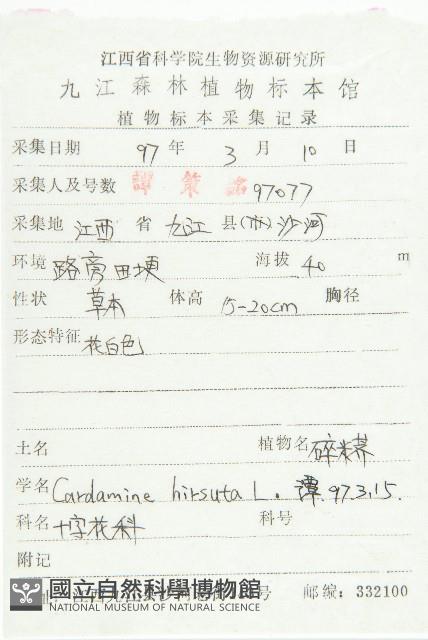 江西省科学院生物资源研究所
九江森林植物标本馆
植物标本采集记录
采集日期 97 年 3 月 10 日
采集人及号数 譚策銘 97077
采集地 江西 省 九江 县(市) 沙河
环境 路旁田埂 海拔 40 m
性状 草本 体高 15-20cm 胸径
形态特征 花白色
土名 植物名 碎米荠
学名 Cardamine hirsuta L. 譚 97.3.15.
科名 十字花科 科号
附记
國立自然科學博物館
NATIONAL MUSEUM OF NATURAL SCIENCE
号 邮编：332100